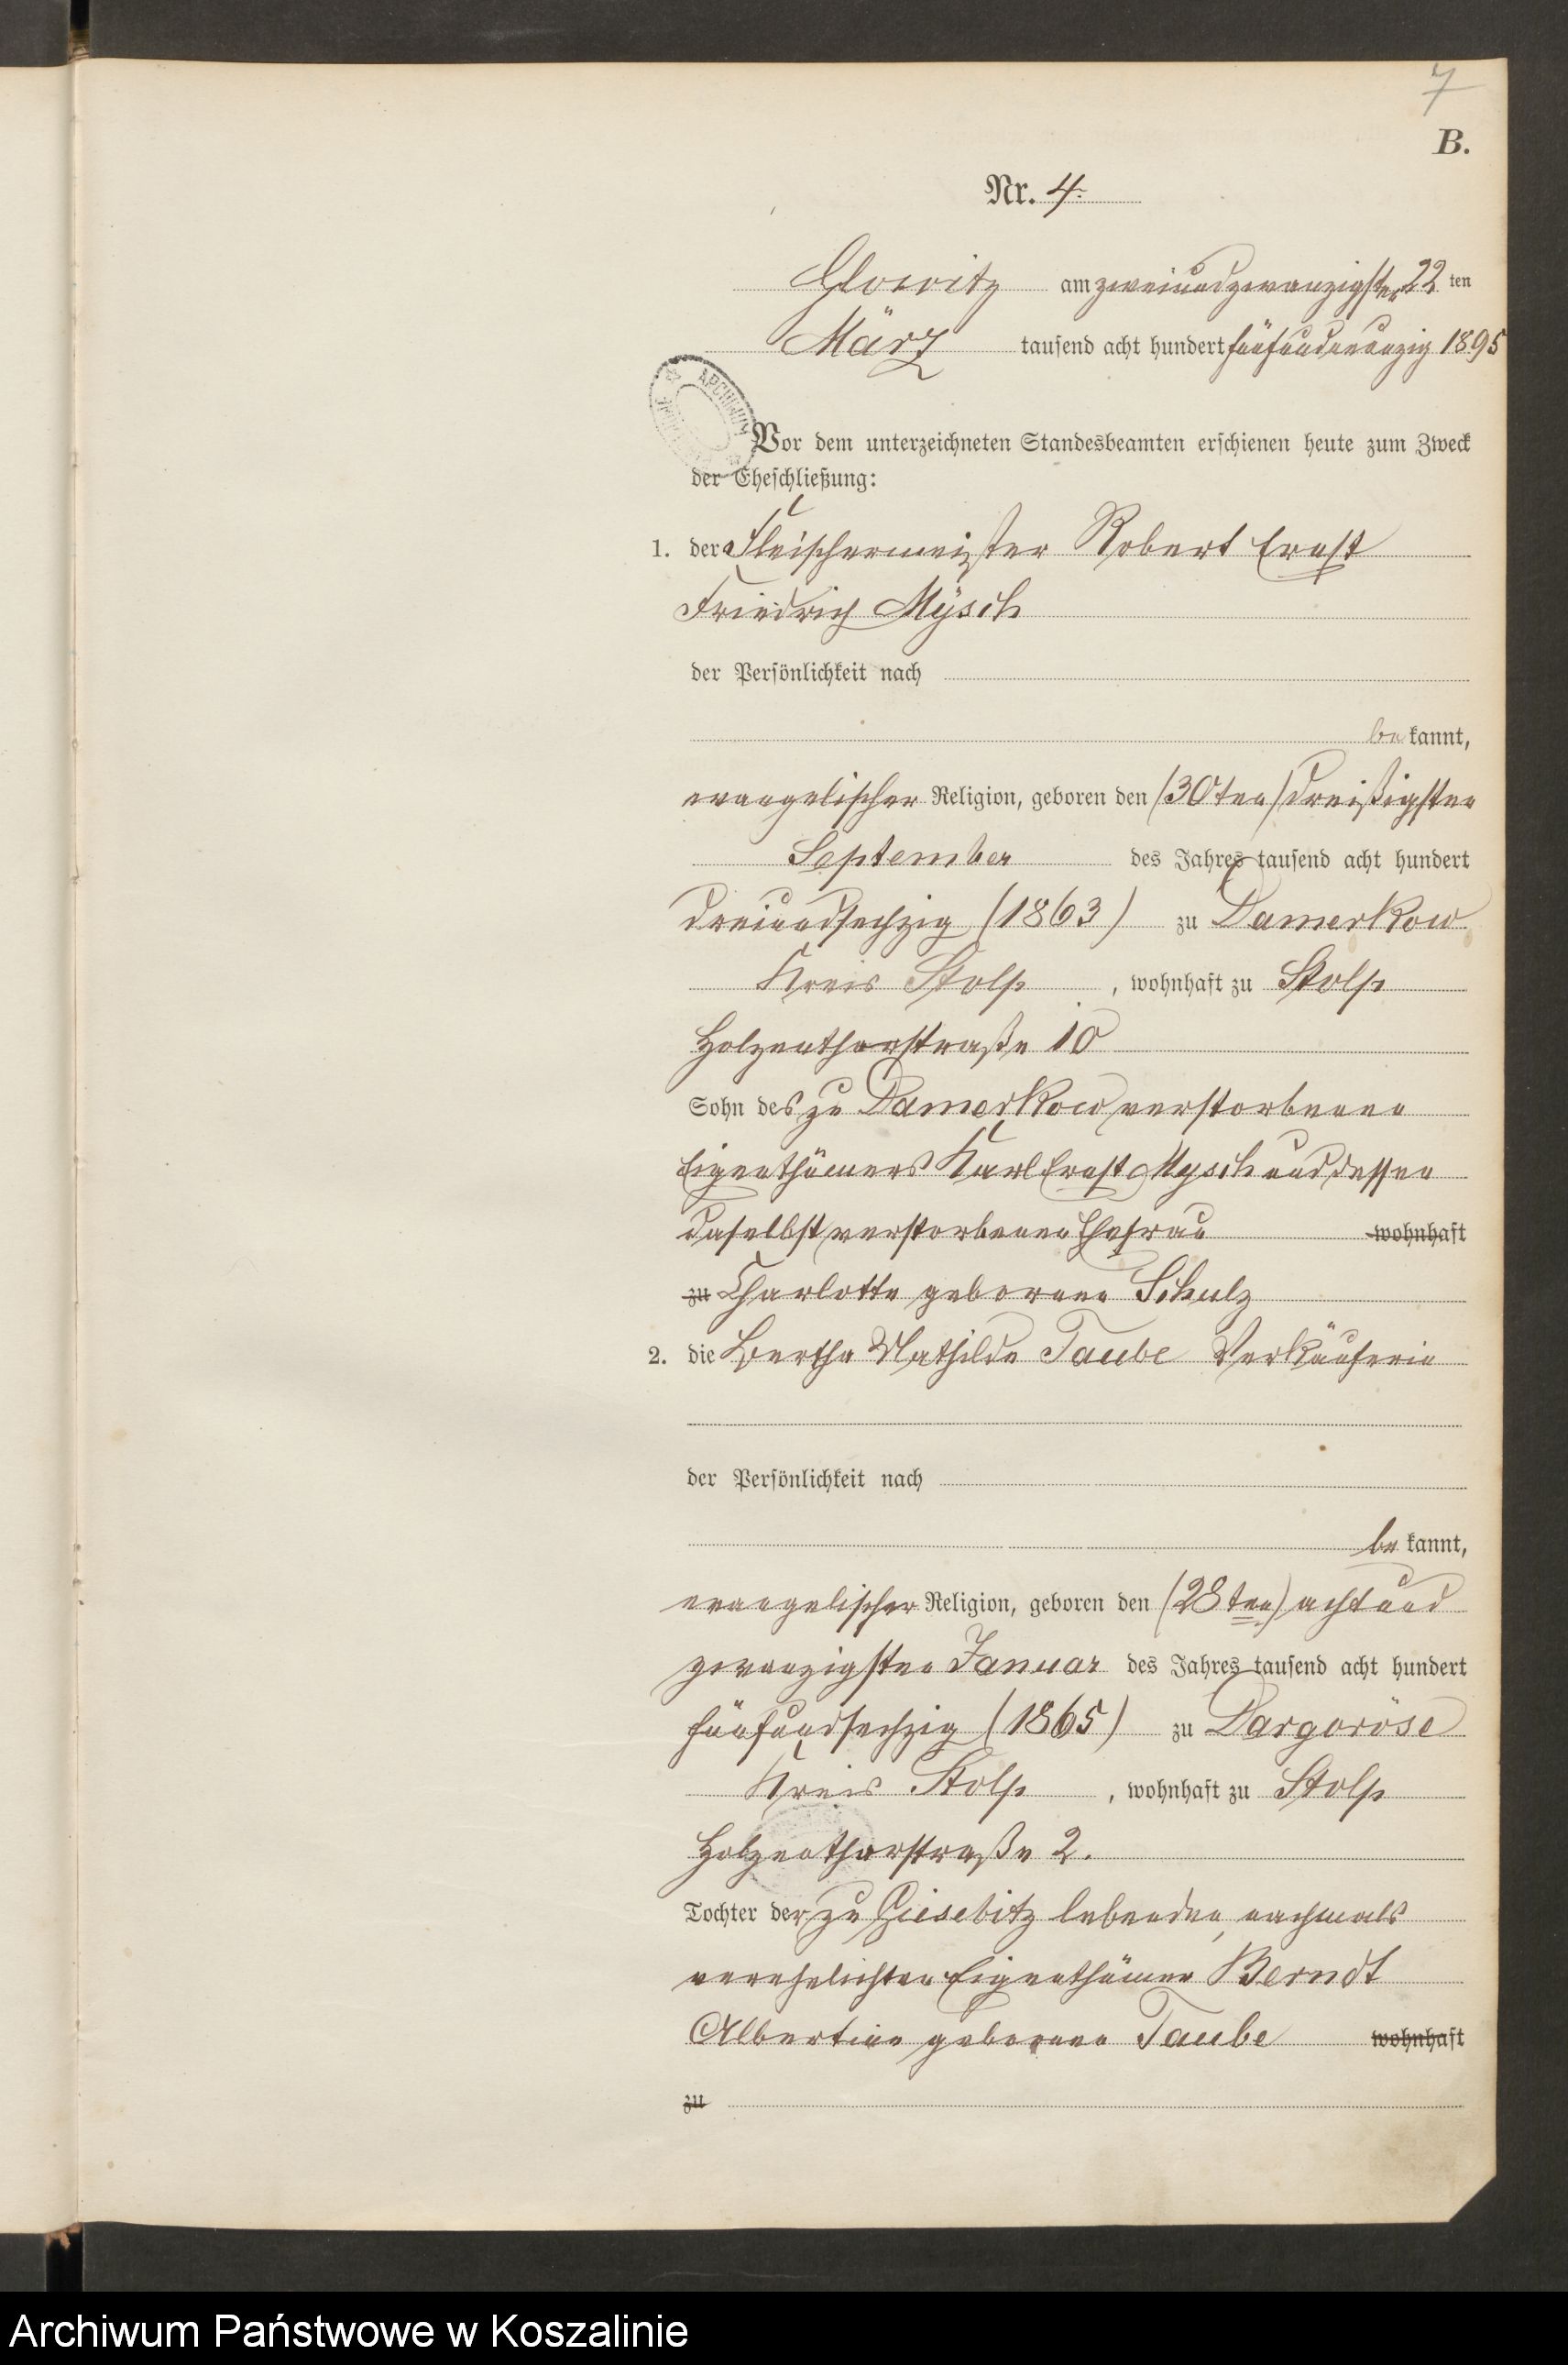 7
B.
Nr. 4.
Glowitz am zweiundzwanzigsten 22 ten
März tausend acht hundert fünfundneunzig 1895
ARCHIWUM
Vor dem unterzeichneten Standesbeamten erschienen heute zum Zweck
der Eheschließung:
1. der Fleischermeister Robert Ernst
Friedrich Mÿsch
der Persönlichkeit nach
be kannt,
evangelischer Religion, geboren den (30ten) dreißigsten
September des Jahres tausend acht hundert
dreiundsechzig (1863) zu Damerkow
Kreis Stolp, wohnhaft zu Stolp
Holzenthorstraße 10
Sohn des zu Damerkow verstorbenen
Eigenthümers Karl Ernst Mysch und dessen
daselbst verstorbenen Ehefrau wohnhaft
zu Charlotte geborene Schulz
2. die Bertha Mathilde Taube Verkäuferin
der Persönlichkeit nach
be kannt,
evangelischer Religion, geboren den (28ten) achtund
zwanzigsten Januar des Jahres tausend acht hundert
fünfundsechzig (1865) zu Dargoröse
Kreis Stolp, wohnhaft zu Stolp
Holzenthorstraße 2.
Tochter der zu Giesebitz lebenden, nachmals
verehelichten Eigenthümer Berndt
Albertine geborene Taube wohnhaft
zu
Archiwum Państwowe w Koszalinie